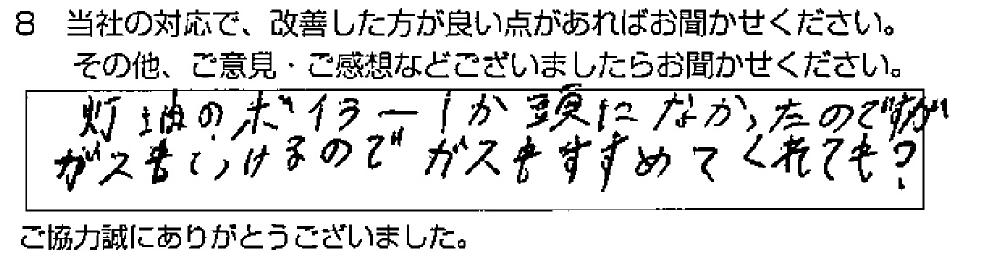 8 当社の対応で、改善した方が良い点があればお聞かせください。
その他、ご意見・ご感想などございましたらお聞かせください。
灯油のボイラーしか頭になかったのですが
ガスもつけるので ガスもすすめてくれても?
ご協力誠にありがとうございました。